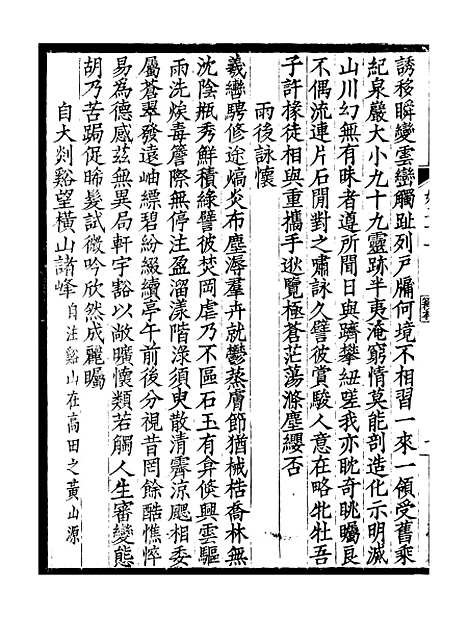 誘移瞬變雲巒觸趾列戶牖何境不相習一來一領受舊乘
紀泉巖大小九十九靈跡半夷淹窮情莫能剖造化示明滅
山川幻無有昧者遵所聞日與躋攀紐嗟我亦眈奇眺矚良
不偶流連片石閒對之嘯詠久譬彼賞駿人意在略牝牡吾
子許椽徒相與重攜手遐覽極蒼茫蕩滌塵纓否
雨後詠懷
羲巒騁修途熇炎布塵溽羣卉就鬱蒸膚節猶械梏喬林無
沈陰瓶秀鮮積綠譬彼焚岡虐乃不區石玉有弇倏興雲驅
雨洗煩毒簷際無停注盈溜漾階淥須臾散清霽涼颸相委
屬蒼翠發遠岫縹碧紛綴續亭午前後分視昔罔餘酷憔悴
易為德感茲無異局軒宇豁以敞曠懷類若觸人生審變態
胡乃苦跼促晞髮試微吟欣然成麗矚
自大剡谿望橫山諸峰自注谿山在高田之黃山源